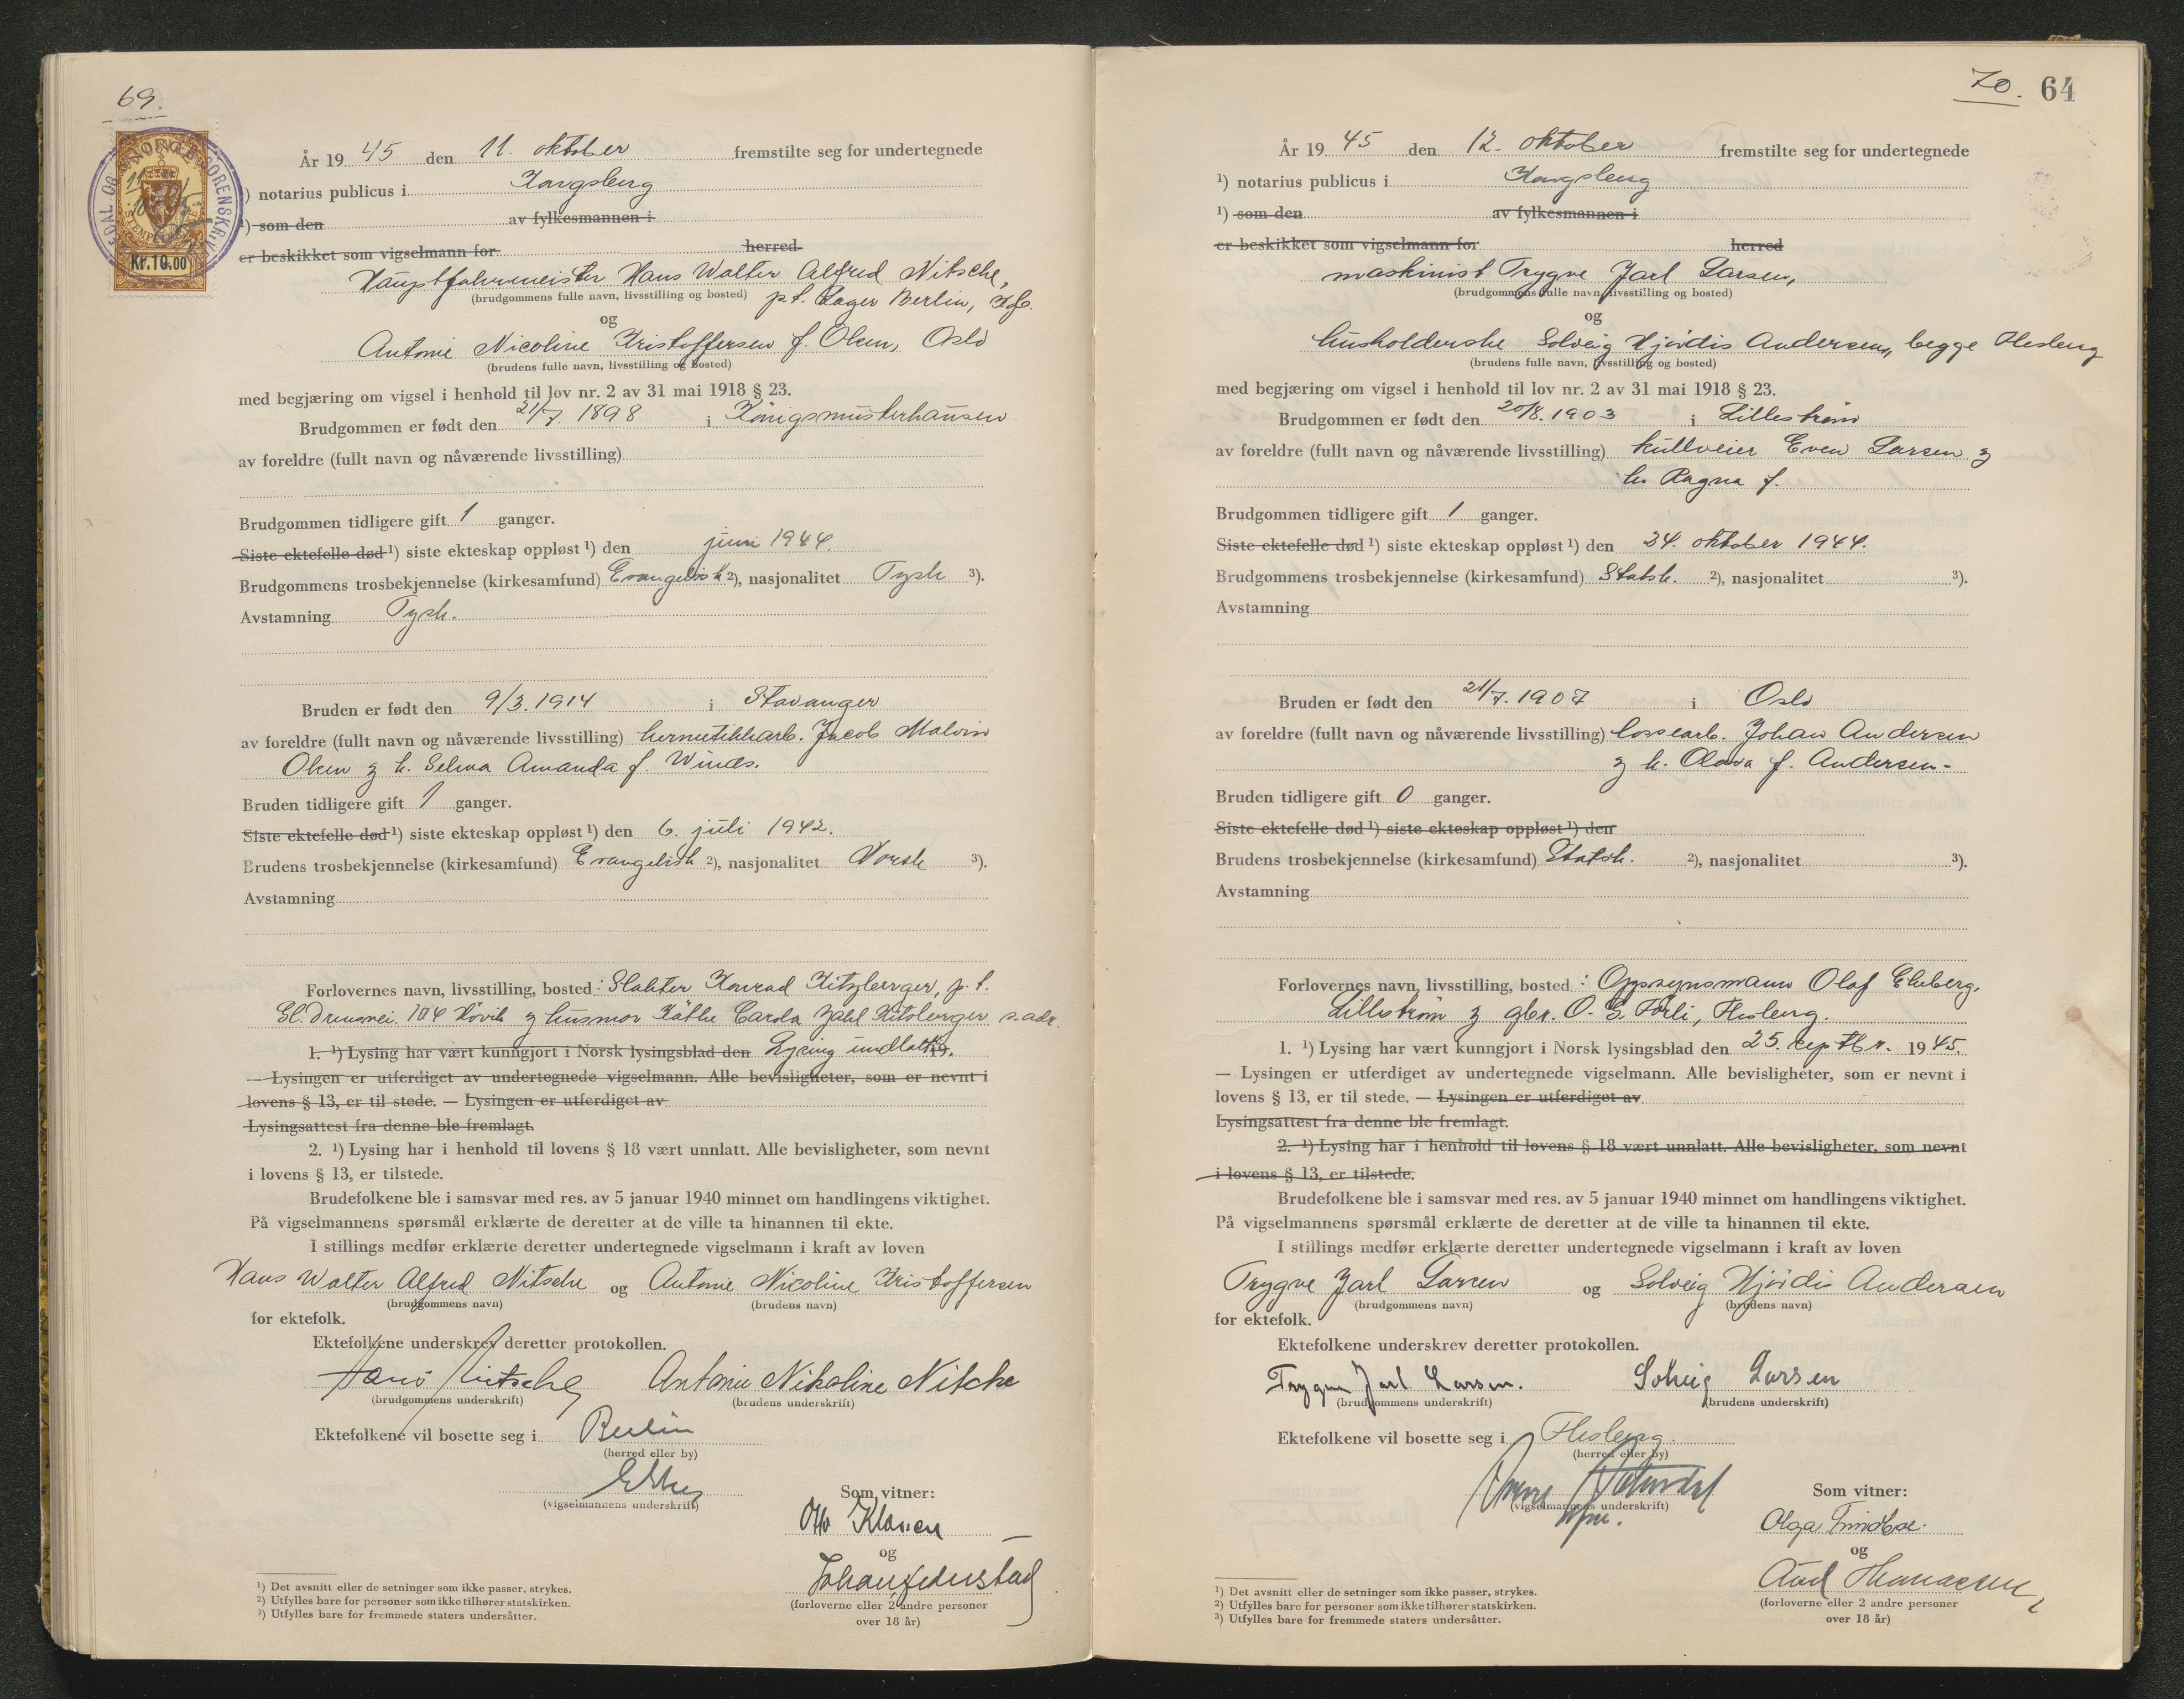 69.
År 19 45 den 11. oktober fremstilte seg for undertegnede
) notarius publicus i Kongsberg
) som den av fylkesmannen i
er beskikket som vigselmann for herred
Hauptfahrmeister Hans Walter Alfred Nitsche,
(brudgommens fulle navn, livsstilling og bosted) p.t. Lager Berlin,
og
Antonie Nicoline Kristoffersen f. Olsen, Oslo
(brudens fulle navn, livsstilling og bosted)
med begjæring om vigsel i henhold til lov nr. 2 av 31 mai 1918 § 23.
Brudgommen er født den 21/7. 1898 i Königsmusterhausen
av foreldre (fullt navn og nåværende livsstilling)
Brudgommen tidligere gift 1 ganger.
Siste ektefelle død ¹) siste ekteskap oppløst ¹) den juni 1944.
Brudgommens trosbekjennelse (kirkesamfund) Evangelisk ²), nasjonalitet Tysk ³).
Avstamning Tysk.
Bruden er født den 9/3. 1914 i Stavanger
av foreldre (fullt navn og nåværende livsstilling) hermetikkarb. Jacob Malvin
Olsen og h. Selma Amanda f. Winds.
Bruden tidligere gift 1 ganger.
Siste ektefelle død ¹) siste ekteskap oppløst ¹) den 6. juli 1942.
Brudens trosbekjennelse (kirkesamfund) Evangelisk ²), nasjonalitet Norsk ³).
Avstamning
Forlovernes navn, livsstilling, bosted: Slakter Konrad Kitzberger, p.t.
Gl. Drmsvei. 104 Høvik og husmor Käthe Carola Zahl Kitzberger s. adr.
1. ¹) Lysing har vært kunngjort i Norsk lysingsblad den Lysing undlatt 19.
— Lysingen er utferdiget av undertegnede vigselmann. Alle bevisligheter, som er nevnt i
lovens § 13, er til stede. — Lysingen er utferdiget av
Lysingsattest fra denne ble fremlagt.
2. ¹) Lysing har i henhold til lovens § 18 vært unnlatt. Alle bevisligheter, som nevnt
i lovens § 13, er tilstede.
Brudefolkene ble i samsvar med res. av 5 januar 1940 minnet om handlingens viktighet.
På vigselmannens spørsmål erklærte de deretter at de ville ta hinannen til ekte.
I stillings medfør erklærte deretter undertegnede vigselmann i kraft av loven
Hans Walter Alfred Nitsche og Antonie Nicoline Kristoffersen
(brudgommens navn) (brudens navn)
for ektefolk.
Ektefolkene underskrev deretter protokollen.
Hans Nitsche Antonie Nikoline Nitche
(brudgommens underskrift) (brudens underskrift)
Ektefolkene vil bosette seg i Berlin
(herred eller by)
(vigselmannens underskrift)
Som vitner:
Otto Klausen
og
(forloverne eller 2 andre personer
over 18 år)
¹) Det avsnitt eller de setninger som ikke passer, strykes.
²) Utfylles bare for personer som ikke tilhører statskirken.
³) Utfylles bare for fremmede staters undersåtter.
NORGE
Kr.10.00
70. 64
År 19 45 den 12. oktober fremstilte seg for undertegnede
¹) notarius publicus i Kongsberg
¹) som den av fylkesmannen i
er beskikket som vigselmann for herred
maskinist Trygve Jarl Larsen,
(brudgommens fulle navn, livsstilling og bosted)
og
husholderske Solveig Hjørdis Andersen, begge Flesberg
(brudens fulle navn, livsstilling og bosted)
med begjæring om vigsel i henhold til lov nr. 2 av 31 mai 1918 § 23.
Brudgommen er født den 20/8. 1903 i Lillestrøm
av foreldre (fullt navn og nåværende livsstilling) kullveier Even Larsen og
h. Ragna f.
Brudgommen tidligere gift 1 ganger.
Siste ektefelle død ¹) siste ekteskap oppløst ¹) den 24. oktober 1944.
Brudgommens trosbekjennelse (kirkesamfund) Statsk. ²), nasjonalitet ³).
Avstamning
Bruden er født den 21/7. 1907 i Oslo
av foreldre (fullt navn og nåværende livsstilling) lossearb. Johan Andersen
og h. Olava f. Andersen-
Bruden tidligere gift 0 ganger.
Siste ektefelle død ¹) siste ekteskap oppløst ¹) den
Brudens trosbekjennelse (kirkesamfund) Statsk. ²), nasjonalitet ³).
Avstamning
Forlovernes navn, livsstilling, bosted: Oppsynsmann Olaf Ekeberg,
Lillestrøm og gbr. O. G. Førli, Flesberg.
1. ¹) Lysing har vært kunngjort i Norsk lysingsblad den 25. septbr. 19 45.
— Lysingen er utferdiget av undertegnede vigselmann. Alle bevisligheter, som er nevnt i
lovens § 13, er til stede. — Lysingen er utferdiget av
Lysingsattest fra denne ble fremlagt.
2. ¹) Lysing har i henhold til lovens § 18 vært unnlatt. Alle bevisligheter, som nevnt
i lovens § 13, er tilstede.
Brudefolkene ble i samsvar med res. av 5 januar 1940 minnet om handlingens viktighet.
På vigselmannens spørsmål erklærte de deretter at de ville ta hinannen til ekte.
I stillings medfør erklærte deretter undertegnede vigselmann i kraft av loven
Trygve Jarl Larsen og Solveig Hjørdis Andersen
(brudgommens navn) (brudens navn)
for ektefolk.
Ektefolkene underskrev deretter protokollen.
Trygve Jarl Larsen. Solveig Larsen
(brudgommens underskrift) (brudens underskrift)
Ektefolkene vil bosette seg i Flesberg.
(herred eller by)
(vigselmannens underskrift)
Som vitner:
Olga
og
Aud
(forloverne eller 2 andre personer
over 18 år)
¹) Det avsnitt eller de setninger som ikke passer, strykes.
²) Utfylles bare for personer som ikke tilhører statskirken.
³) Utfylles bare for fremmede staters undersåtter.